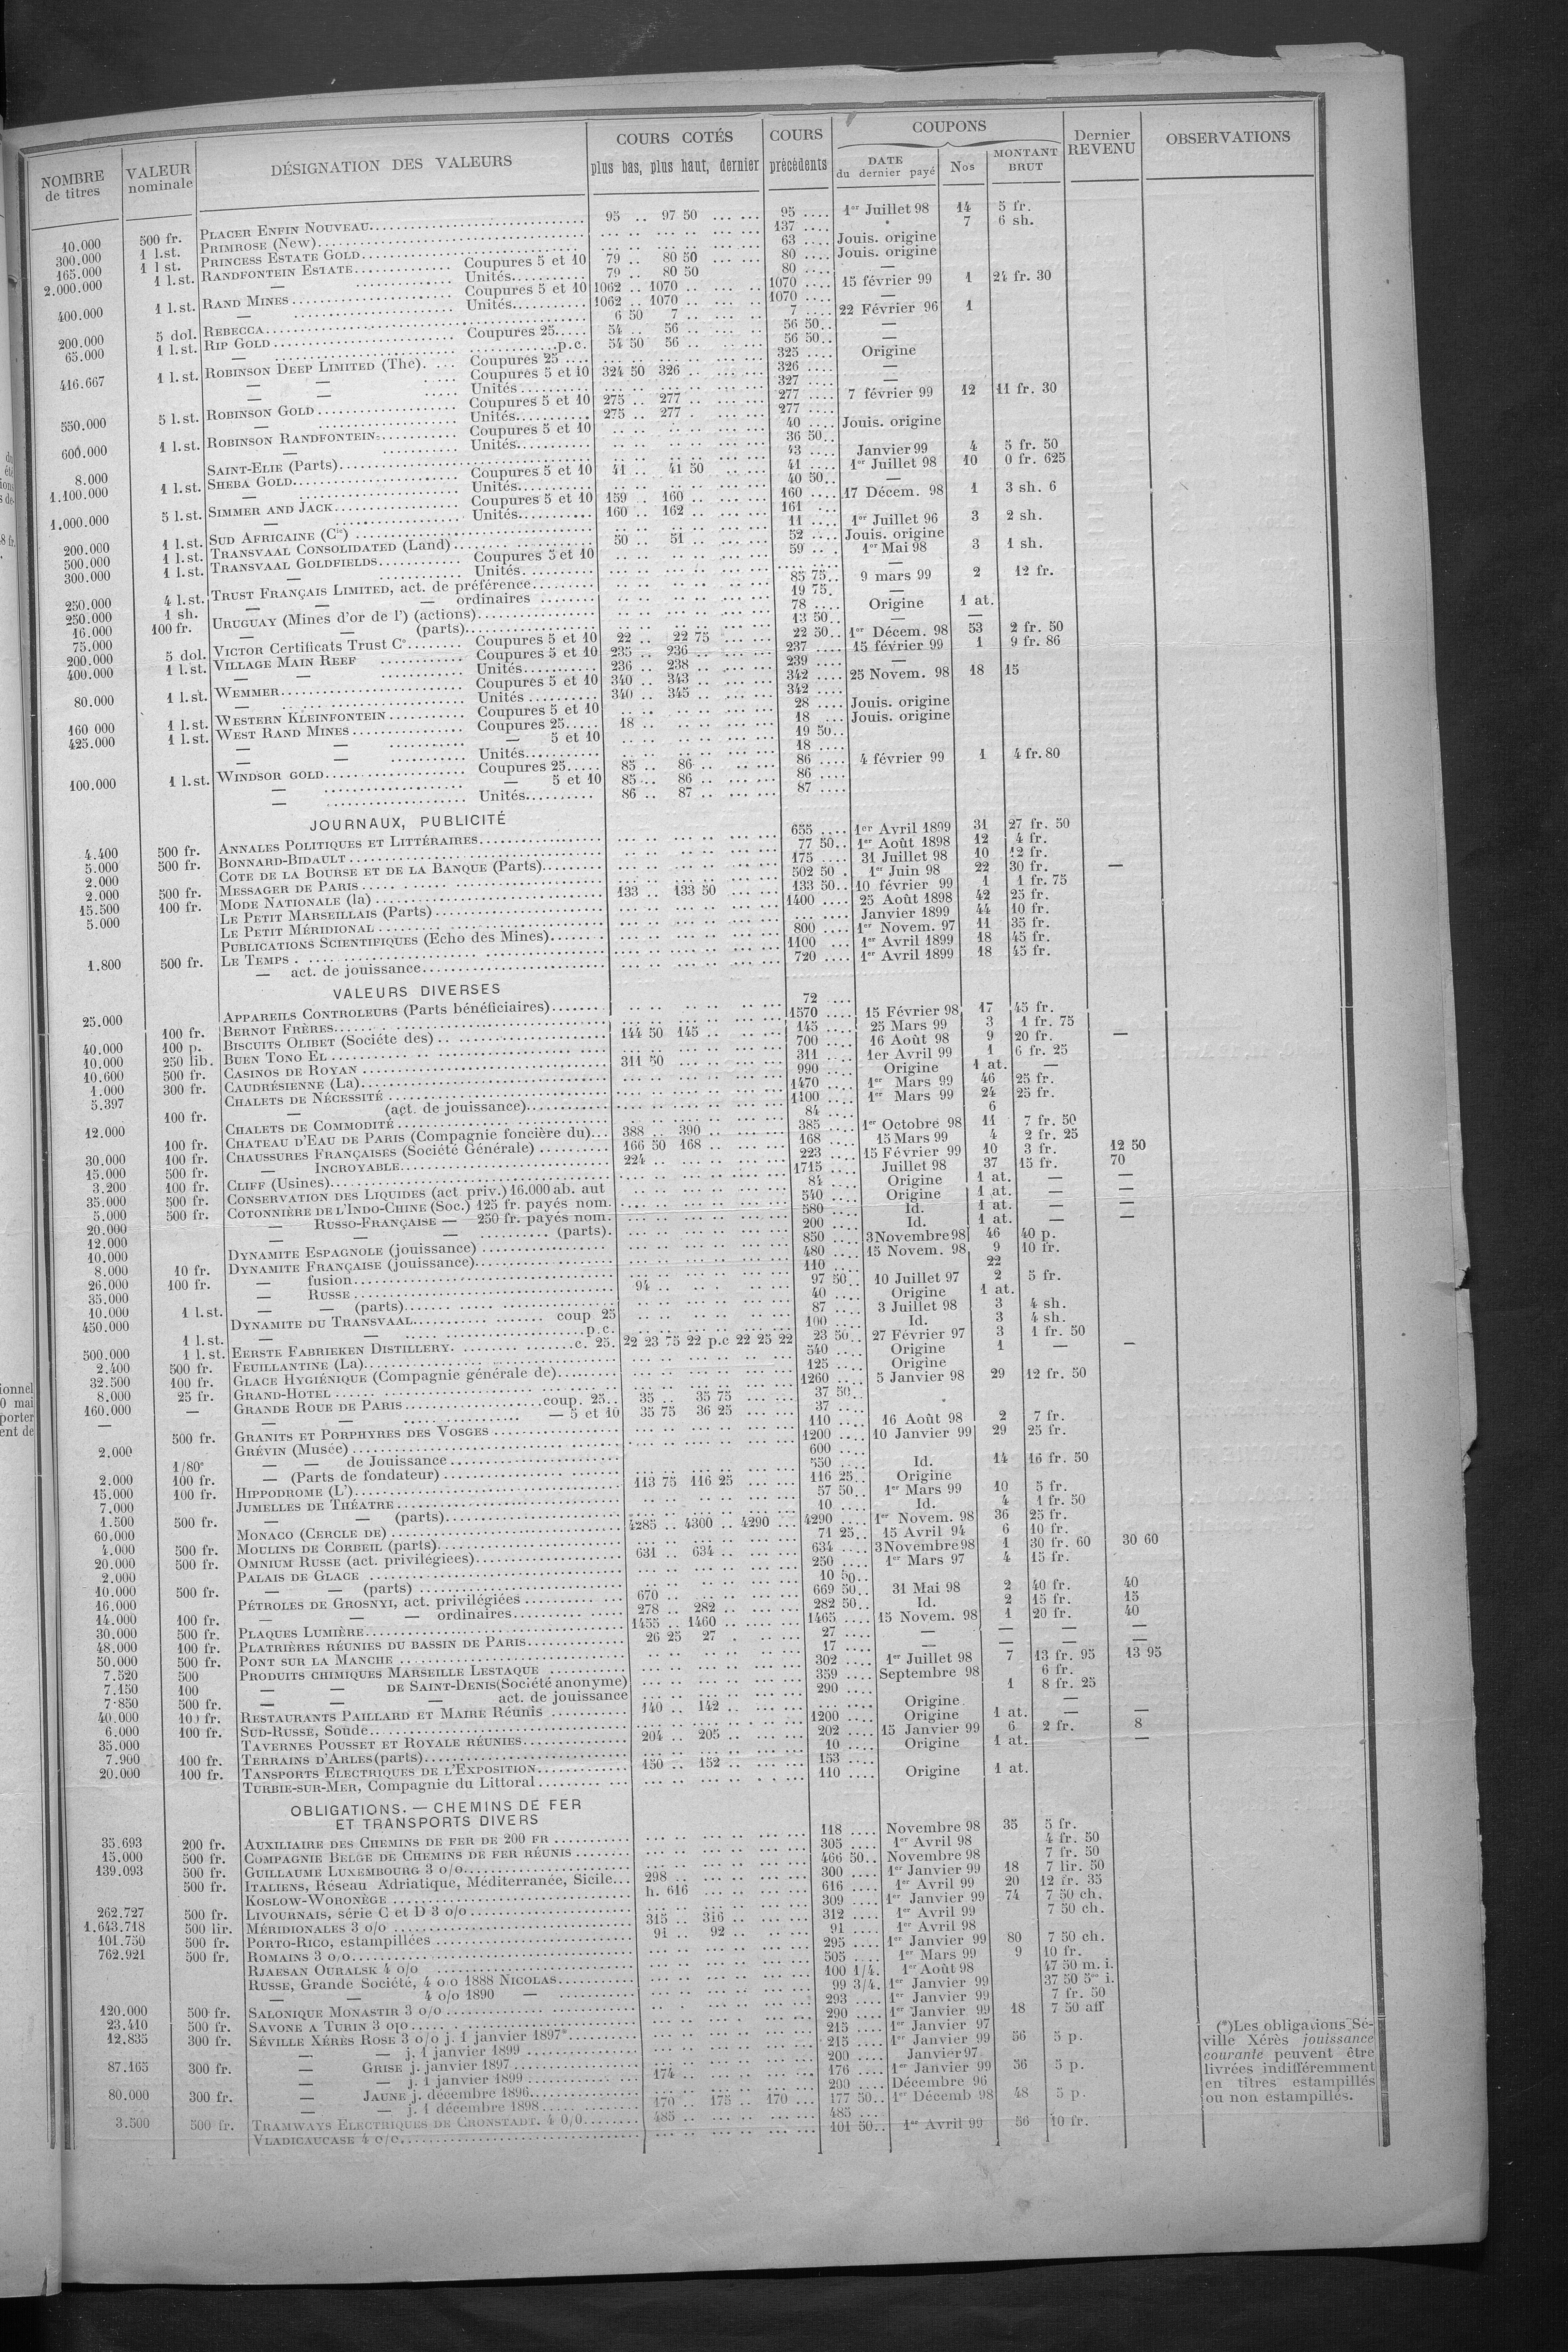 NOMBRE de titres | VALEUR nominale | DÉSIGNATION DES VALEURS | COURS COTÉS plus bas, plus haut, dernier | COURS précédents | COUPONS DATE du dernier payé | Nos | MONTANT BRUT | Dernier REVENU | OBSERVATIONS
10.000 500 fr. PLACER ENFIN NOUVEAU 95 .. 97 50 95 .... 1er Juillet 98 14 5 fr.
300.000 1 l.st. PRIMROSE (New) 137 .... 7 6 sh.
165.000 1 l st. PRINCESS ESTATE GOLD 63 .... Jouis. origine
2.000.000 1 l.st. RANDFONTEIN ESTATE Coupures 5 et 10 79 .. 80 50 80 .... Jouis. origine
— Unités 79 .. 80 50 80 .... —
400.000 1 l.st. RAND MINES Coupures 5 et 10 1062 .. 1070 .. 1070 .... 15 février 99 1 24 fr. 30
— Unités 1062 .. 1070 .. 1070 .... —
200.000 5 dol. REBECCA 6 50 7 .. 7 .... 22 Février 96 1
65.000 1 l.st. RIP GOLD Coupures 25 54 .. 56 .. 56 50.. —
— p.c. 54 50 56 .. 56 50.. —
416.667 1 l.st. ROBINSON DEEP LIMITED (The). Coupures 25 325 .... Origine
— — Coupures 5 et 10 324 50 326 .. 326 .... —
— — Unités 327 .... —
550.000 5 l.st. ROBINSON GOLD Coupures 5 et 10 275 .. 277 .. 277 .... 7 février 99 12 11 fr. 30
— Unités 275 .. 277 . 277 ....
600.000 1 l.st. ROBINSON RANDFONTEIN Coupures 5 et 10 40 .... Jouis. origine
— Unités 36 50..
8.000 SAINT-ELIE (Parts) 43 .... Janvier 99 4 5 fr. 50
1.100.000 1 l.st. SHEBA GOLD Coupures 5 et 10 41 .. 41 50 41 .... 1er Juillet 98 10 0 fr. 625
— Unités 40 50.. —
1.000.000 5 l.st. SIMMER AND JACK Coupures 5 et 10 159 .. 160 .. 160 .... 17 Décem. 98 1 3 sh. 6
— Unités 160 .. 162 .. 161 ...
200.000 1 l.st. SUD AFRICAINE (Cie) 11 .... 1er Juillet 96 3 2 sh.
500.000 1 l.st. TRANSVAAL CONSOLIDATED (Land) 50 .. 51 .. 52 .... Jouis. origine
300.000 1 l.st. TRANSVAAL GOLDFIELDS Coupures 5 et 10 59 .. . 1er Mai 98 3 1 sh.
— Unités —
250.000 4 l.st. TRUST FRANÇAIS LIMITED, act. de préférence 85 75.. 9 mars 99 2 12 fr.
250.000 1 sh. — — — ordinaires 19 75. —
16.000 100 fr. URUGUAY (Mines d'or de l') (actions) 78 .... Origine 1 at.
75.000 — — (parts) 13 50.. —
200.000 5 dol. VICTOR Certificats Trust Co Coupures 5 et 10 22 .. 22 75 22 50.. 1er Décem. 98 53 2 fr. 50
400.000 1 l.st. VILLAGE MAIN REEF Coupures 5 et 10 235 .. 236 .. 237 .... 15 février 99 1 9 fr. 86
— — Unités 236 .. 238 .. 239 .... —
80.000 1 l.st. WEMMER Coupures 5 et 10 340 .. 343 .. 342 .... 25 Novem. 98 18 15
— Unités 340 .. 345 .. 342 ....
160 000 1 l.st. WESTERN KLEINFONTEIN Coupures 5 et 10 28 .... Jouis. origine
425.000 1 l.st. WEST RAND MINES Coupures 25 18 .. 18 ... Jouis. origine
— — — 5 et 10 19 50..
— — Unités 18 ....
100.000 1 l.st. WINDSOR GOLD Coupures 25 85 .. 86 .. 86 .... 4 février 99 1 4 fr. 80
— — 5 et 10 85 .. 86 .. 86 ....
— Unités 86 .. 87 .. 87 ....
JOURNAUX, PUBLICITÉ
4.400 500 fr. ANNALES POLITIQUES ET LITTÉRAIRES 655 .... 1er Avril 1899 31 27 fr. 50
5.000 500 fr. BONNARD-BIDAULT 77 50.. 1er Août 1898 12 4 fr.
2.000 COTE DE LA BOURSE ET DE LA BANQUE (Parts) 175 .... 31 Juillet 98 10 12 fr.
2.000 500 fr. MESSAGER DE PARIS 502 50 . 1er Juin 98 22 30 fr. —
15.500 100 fr. MODE NATIONALE (la) 133 .. 133 50 133 50.. 10 février 99 1 1 fr. 75
5.000 LE PETIT MARSEILLAIS (Parts) 1400 .... 25 Août 1898 42 25 fr.
LE PETIT MÉRIDIONAL Janvier 1899 44 10 fr.
PUBLICATIONS SCIENTIFIQUES (Echo des Mines) 800 .... 1er Novem. 97 11 35 fr.
1.800 500 fr. LE TEMPS 1100 ... 1er Avril 1899 18 45 fr.
— act. de jouissance 720 .... 1er Avril 1899 18 45 fr.
VALEURS DIVERSES
25.000 APPAREILS CONTROLEURS (Parts bénéficiaires) 72 ....
100 fr. BERNOT FRÈRES 1570 .... 15 Février 98 17 45 fr.
40.000 100 p. BISCUITS OLIBET (Sociéte des) 144 50 145 .. 145 .... 25 Mars 99 3 1 fr. 75
10.000 250 lib. BUEN TONO EL 700 .... 16 Août 98 9 20 fr. —
10.600 500 fr. CASINOS DE ROYAN 311 50 311 .... 1er Avril 99 1 6 fr. 25
1.000 300 fr. CAUDRÉSIENNE (La) 990 .... Origine 1 at. —
5.397 CHALETS DE NÉCESSITÉ 1470 .... 1er Mars 99 46 25 fr.
100 fr. — (act. de jouissance) 1100 .... 1er Mars 99 24 25 fr.
12.000 CHALETS DE COMMODITÉ 84 .... 6
100 fr. CHATEAU D'EAU DE PARIS (Compagnie foncière du) 388 .. 390 .. 385 .... 1er Octobre 98 11 7 fr. 50
30.000 100 fr. CHAUSSURES FRANÇAISES (Société Générale) 166 50 168 .. 168 .... 15 Mars 99 4 2 fr. 25
15.000 500 fr. — INCROYABLE 224 .. 223 .... 15 Février 99 10 3 fr. 12 50
3.200 100 fr. CLIFF (Usines) 1715 .... Juillet 98 37 15 fr. 70
35.000 500 fr. CONSERVATION DES LIQUIDES (act priv.) 16.000 ab. aut 84 .... Origine 1 at. — —
5.000 500 fr. COTONNIÈRE DE L'INDO-CHINE (Soc.) 125 fr. payés nom. 540 .... Origine 1 at. — —
20.000 — RUSSO-FRANÇAISE — 250 fr. payés nom. 580 .... Id. 1 at. — —
12.000 — — — (parts). 200 .... Id. 1 at. — —
10.000 DYNAMITE ESPAGNOLE (jouissance) 850 .... 3 Novembre 98 46 40 p.
8.000 10 fr. DYNAMITE FRANÇAISE (jouissance) 480 .... 15 Novem. 98 9 10 fr.
26.000 100 fr. — fusion 110 .... 22
35.000 — RUSSE 94 .. 97 50.. 10 Juillet 97 2 5 fr.
10.000 — — (parts) 40 .... Origine 1 at.
450.000 1 l.st. DYNAMITE DU TRANSVAAL coup 25 87 .... 3 Juillet 98 3 4 sh.
— — p.c. 100 .... Id. 3 4 sh.
500.000 1 l.st. EERSTE FABRIEKEN DISTILLERY c. 25. 22 23 75 22 p.c 22 25 22 23 50.. 27 Février 97 3 1 fr. 50
2.400 500 fr. FEUILLANTINE (La) 540 .... Origine 1 — —
32.500 100 fr. GLACE HYGIÉNIQUE (Compagnie générale de) 125 .... Origine
8.000 25 fr. GRAND-HOTEL 1260 .... 5 Janvier 98 29 12 fr. 50
160.000 — GRANDE ROUE DE PARIS coup. 25.. 35 .. 35 75 37 50..
— — — — 5 et 10 35 75 36 25 37 ....
500 fr. GRANITS ET PORPHYRES DES VOSGES 110 .... 16 Août 98 2 7 fr.
2.000 GRÉVIN (Musée) 1200 .... 10 Janvier 99 29 25 fr.
1/80e — — de Jouissance 600 ....
2.000 100 fr. — (Parts de fondateur) 550 .... Id. 14 16 fr. 50
15.000 100 fr. HIPPODROME (L') 113 75 116 25 116 25.. Origine
7.000 JUMELLES DE THÉATRE 57 50.. 1er Mars 99 10 5 fr.
1.500 500 fr. — — (parts) 10 .... Id. 4 1 fr. 50
60.000 MONACO (CERCLE DE) 4285 .. 4300 .. 4290 ... 4290 .... 1er Novem. 98 36 25 fr.
4.000 500 fr. MOULINS DE CORBEIL (parts) 71 25.. 15 Avril 94 6 10 fr.
20.000 500 fr. OMNIUM RUSSE (act. privilégiees) 631 .. 634 .. 634 .... 3 Novembre 98 1 30 fr. 60 30 60
2.000 PALAIS DE GLACE 250 .... 1er Mars 97 4 15 fr.
10.000 500 fr. — — (parts) 10 50..
16.000 PÉTROLES DE GROSNYI, act. privilégiées 670 .. 669 50.. 31 Mai 98 2 40 fr. 40
14.000 100 fr. — — — ordinaires 278 .. 282 .. 282 50.. Id. 2 15 fr. 15
30.000 500 fr. PLAQUES LUMIÈRE 1455 .. 1460 .. 1465 .... 15 Novem. 98 1 20 fr. 40
48.000 100 fr. PLATRIÈRES RÉUNIES DU BASSIN DE PARIS 26 25 27 . 27 .... — — — —
50.000 500 fr. PONT SUR LA MANCHE 17 .... — — — —
7.520 500 PRODUITS CHIMIQUES MARSEILLE LESTAQUE 302 .... 1er Juillet 98 7 13 fr. 95 13 95
7.150 100 — — DE SAINT-DENIS (Société anonyme) 359 .... Septembre 98 6 fr.
7.850 500 fr. — — — act. de jouissance 290 .... 1 8 fr. 25
40.000 100 fr. RESTAURANTS PAILLARD ET MAIRE Réunis 140 .. 142 .. Origine —
6.000 100 fr. SUD-RUSSE, Soude 1200 .... Origine 1 at. — —
35.000 TAVERNES POUSSET ET ROYALE RÉUNIES 204 .. 205 .. 202 .... 15 Janvier 99 6 2 fr. 8
7.900 100 fr. TERRAINS D'ARLES (parts) 10 .... Origine 1 at. —
20.000 100 fr. TANSPORTS ELECTRIQUES DE L'EXPOSITION 150 .. 152 .. 153 ....
TURBIE-SUR-MER, Compagnie du Littoral 110 .... Origine 1 at.
OBLIGATIONS. — CHEMINS DE FER
ET TRANSPORTS DIVERS
35.693 200 fr. AUXILIAIRE DES CHEMINS DE FER DE 200 FR 118 .... Novembre 98 35 5 fr.
15.000 500 fr. COMPAGNIE BELGE DE CHEMINS DE FER RÉUNIS 305 .... 1er Avril 98 4 fr. 50
139.093 500 fr. GUILLAUME LUXEMBOURG 3 o/o 466 50.. Novembre 98 7 fr. 50
500 fr. ITALIENS, Réseau Adriatique, Méditerranée, Sicile 298 .. 300 .... 1er Janvier 99 18 7 lir. 50
KOSLOW-WORONÈGE h. 616 616 .... 1er Avril 99 20 12 fr. 35
262.727 500 fr. LIVOURNAIS, série C et D 3 o/o 309 .... 1er Janvier 99 74 7 50 ch.
1.643.718 500 lir. MÉRIDIONALES 3 o/o 315 .. 316 .. 312 .... 1er Avril 99 7 50 ch.
101.750 500 fr. PORTO-RICO, estampillées 91 .. 92 .. 91 .... 1er Avril 98
762.921 500 fr. ROMAINS 3 o/o 295 .... 1er Janvier 99 80 7 50 ch.
RJAESAN OURALSK 4 o/o 505 .... 1er Mars 99 9 10 fr.
RUSSE, Grande Société, 4 o/o 1888 NICOLAS 100 1/4. 1er Août 98 47 50 m. i.
— — 4 o/o 1890 — 99 3/4. 1er Janvier 99 37 50 5oo i.
120.000 500 fr. SALONIQUE MONASTIR 3 o/o 293 .... 1er Janvier 99 7 fr. 50
23.410 500 fr. SAVONE A TURIN 3 o/o 290 .... 1er Janvier 99 18 7 50 aff
12.835 300 fr. SÉVILLE XÉRÈS ROSE 3 o/o j. 1 janvier 1897* 215 .... 1er Janvier 97
— — j. 1 janvier 1899 215 .... 1er Janvier 99 56 5 p.
87.165 300 fr. — GRISE j. janvier 1897 200 .... Janvier 97
— — j. 1 janvier 1899 174 .. 176 .... 1er Janvier 99 56 5 p.
80.000 300 fr. — JAUNE j. décembre 1896 200 .... Décembre 96
— — j. 1 décembre 1898 170 .. 175 .. 170 ... 177 50.. 1er Décemb 98 48 5 p.
3.500 500 fr. TRAMWAYS ELECTRIQUES DE CRONSTADT. 4 0/0 485 .. 485 ...
VLADICAUCASE 4 o/o 101 50.. 1er Avril 99 56 10 fr.
(*) Les obligations Sé-
ville Xérès jouissance
courante peuvent être
livrées indifféremment
en titres estampillés
ou non estampillés.
ionnel
0 mai
porter
ent de